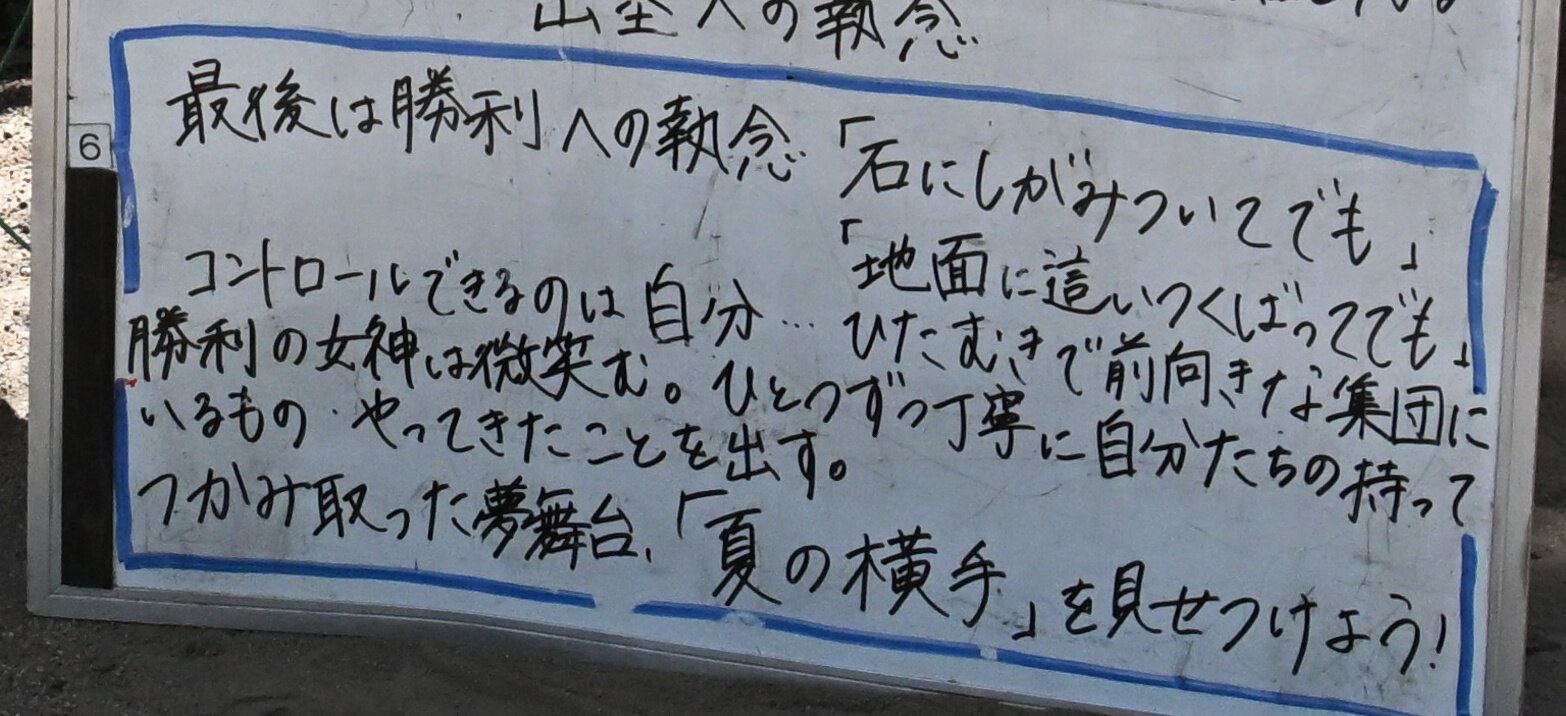 出塁への執念
最後は勝利への執念「石にしがみついてでも」
「地面に這いつくばってでも」
コントロールできるのは自分… ひたむきで前向きな集団に
勝利の女神は微笑む。ひとつずつ丁寧に自分たちの持って
いるもの・やってきたことを出す。
つかみ取った夢舞台、「夏の横手」を見せつけよう!
6